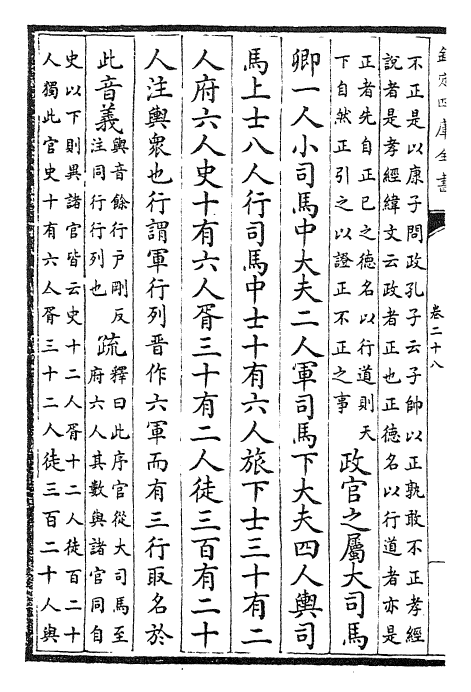 欽定四庫全書
卷二十八
不正是以康子問政孔子云子帥以正孰敢不正孝經
說者是孝經緯文云政者正也正德名以行道者亦是
正者先自正己之德名以行道則天
下自然正引之以證正不正之事
政官之屬大司馬
卿一人小司馬中大夫二人軍司馬下大夫四人輿司
馬上士八人行司馬中士十有六人旅下士三十有二
人府六人史十有六人胥三十有二人徒三百有二十
人注輿衆也行謂軍行列晉作六軍而有三行取名於
此音義
輿音餘行戶剛反
注同行行列也
疏
釋曰此序官從大司馬至
府六人其數與諸官同自
史以下則異諸官皆云史十二人胥十二人徒百二十
人獨此官史十有六人胥三十二人徒三百二十人與